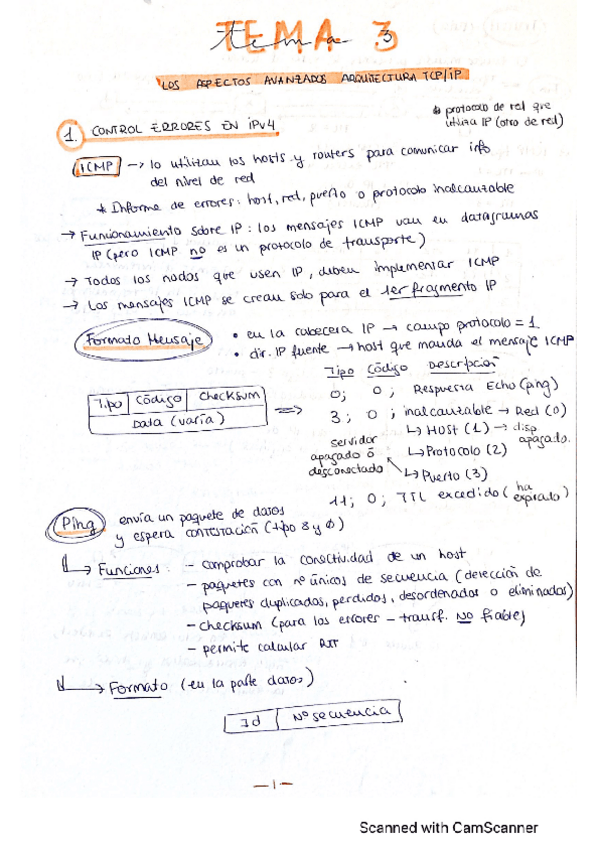 TEMA 3
tema 3
LOS ASPECTOS AVANZADOS ARQUITECTURA TCP/IP
* protocolo de red que
utiliza IP (otro de red)
1. CONTROL ERRORES EN IPv4
ICMP → lo utilizan los hosts y routers para comunicar info
del nivel de red
* Informe de errores: host, red, puerto o protocolo inalcanzable
→ Funcionamiento sobre IP: los mensajes ICMP van en datagramas
IP (pero ICMP no es un protocolo de transporte)
→ Todos los nodos que usen IP, deben implementar ICMP
→ Los mensajes ICMP se crean solo para el 1er fragmento IP
Formato Mensaje
• en la cabecera IP → campo protocolo = 1
• dir. IP fuente → host que manda el mensaje ICMP
Tipo Código Descripción
0; 0; Respuesta Echo (ping)
Tipo Código Checksum
Data (varía)
⇒
3; 0; inalcanzable → Red (0)
↳ Host (1) → disp. apagado.
↳ Protocolo (2)
↳ Puerto (3)
servidor
apagado o
desconectado
11; 0; TTL excedido (ha expirado)
Ping envía un paquete de datos
y espera contestación (tipo 8 y 0)
↳ Funciones: - comprobar la conectividad de un host
- paquetes con nº únicos de secuencia (detección de
paquetes duplicados, perdidos, desordenados o eliminados)
- checksum (para los errores - transf. NO fiable)
- permite calcular RTT
↳ Formato (en la parte datos)
Id Nº secuencia
-1-
Scanned with CamScanner